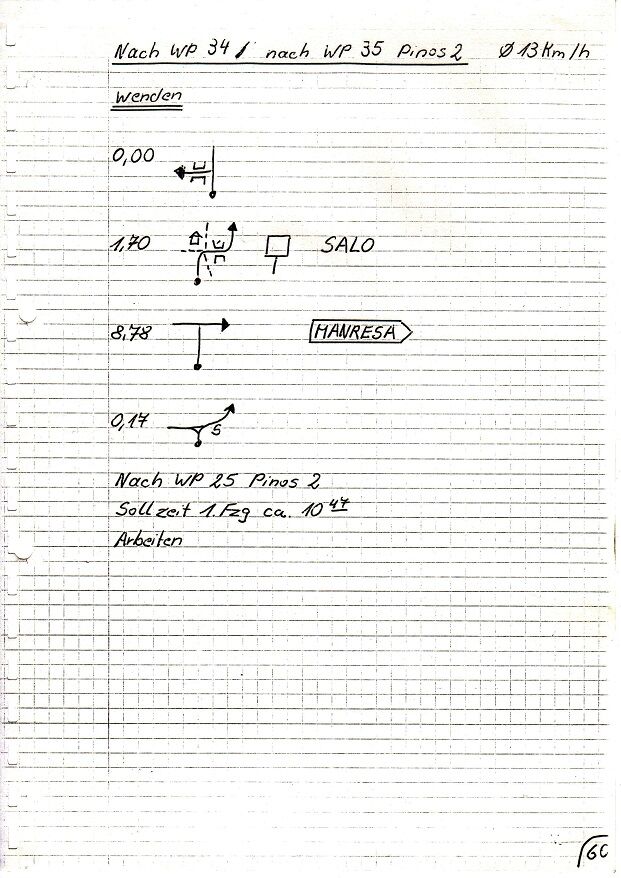 Nach WP 34 / nach WP 35 Pinos 2 Ø 13 Km/h
Wenden
0,00
1,70 SALO
8,78 MANRESA
0,17 S
Nach WP 25 Pinos 2
Sollzeit 1. Fzg ca. 10 47
Arbeiten
60